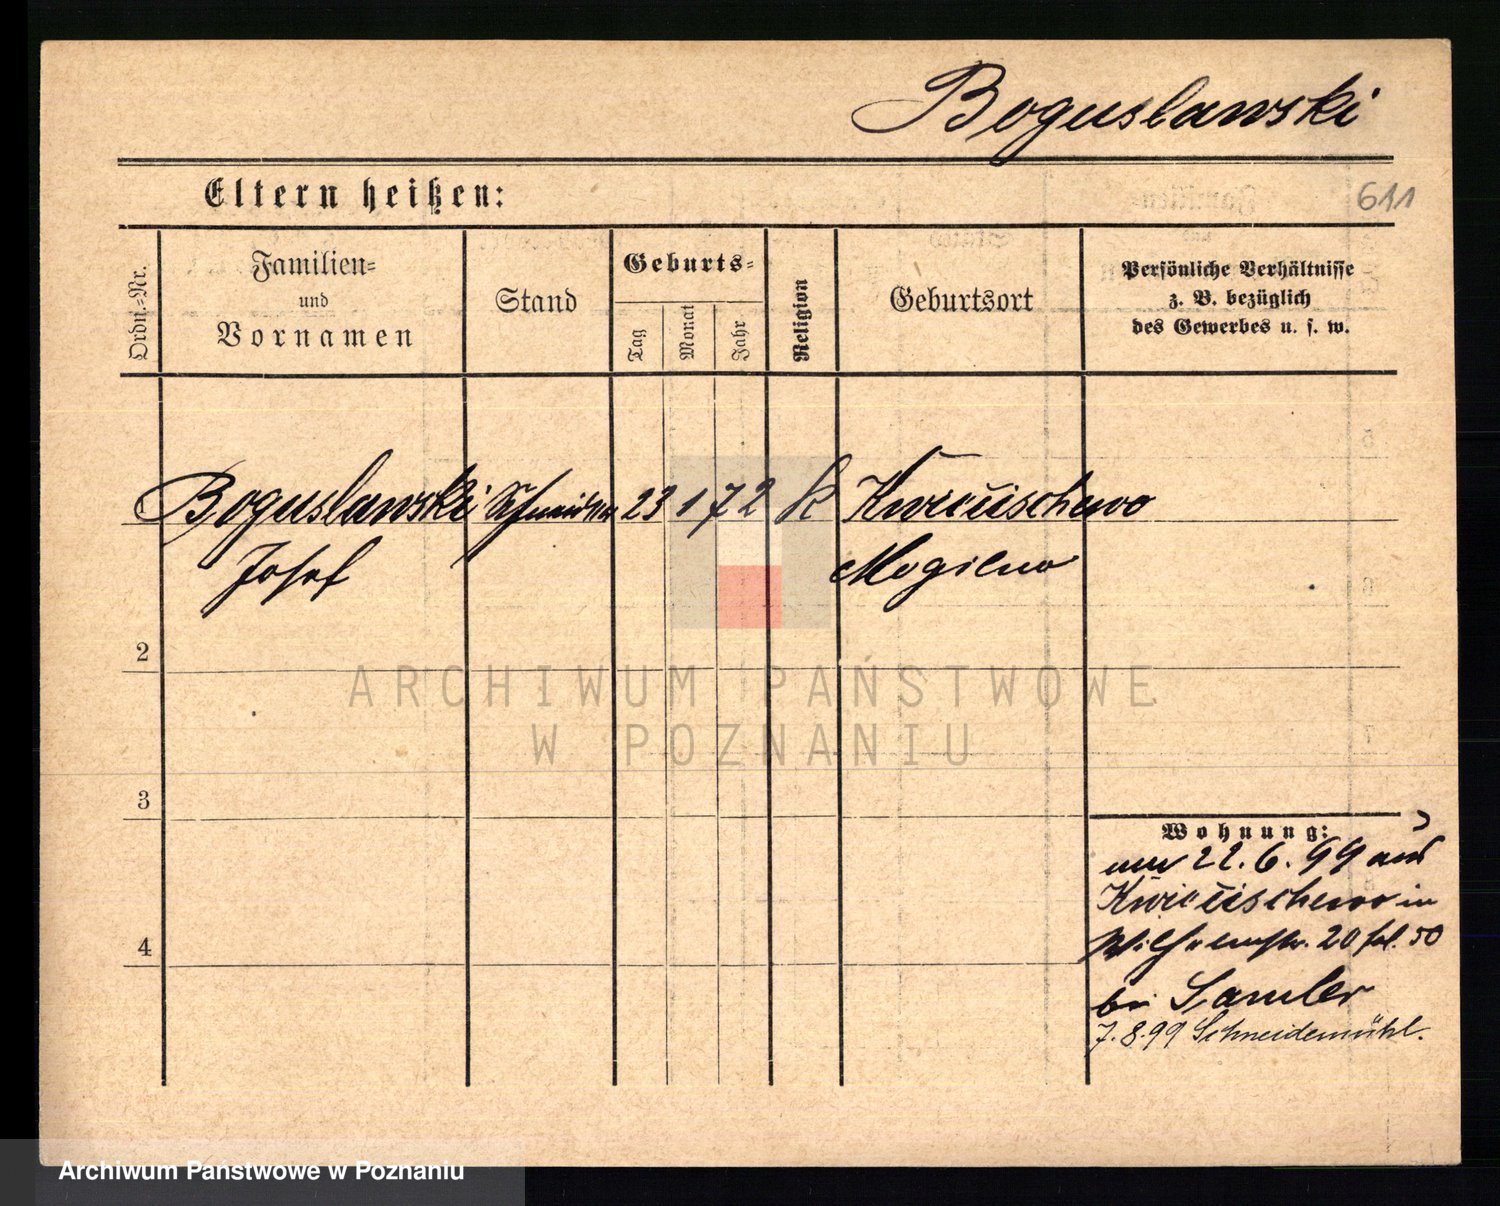 Boguslawski
Eltern heißen:
611
Ordn.-Nr.
Familien-
und
Vornamen
Stand
Geburts-
Tag
Monat
Jahr
Religion
Geburtsort
Persönliche Verhältnisse
z. B. bezüglich
des Gewerbes u. s. w.
Boguslawski Schneider 23 1 72 k Kwiecischewo
Josef Mogilno
2
3
4
Wohnung:
22.6.99 aus
Kwiecischewo in
Wilhelmstr. 20 50
bei Samler
7.8.99 Schneidemühl.
ARCHIWUM PAŃSTWOWE
W POZNANIU
Archiwum Państwowe w Poznaniu